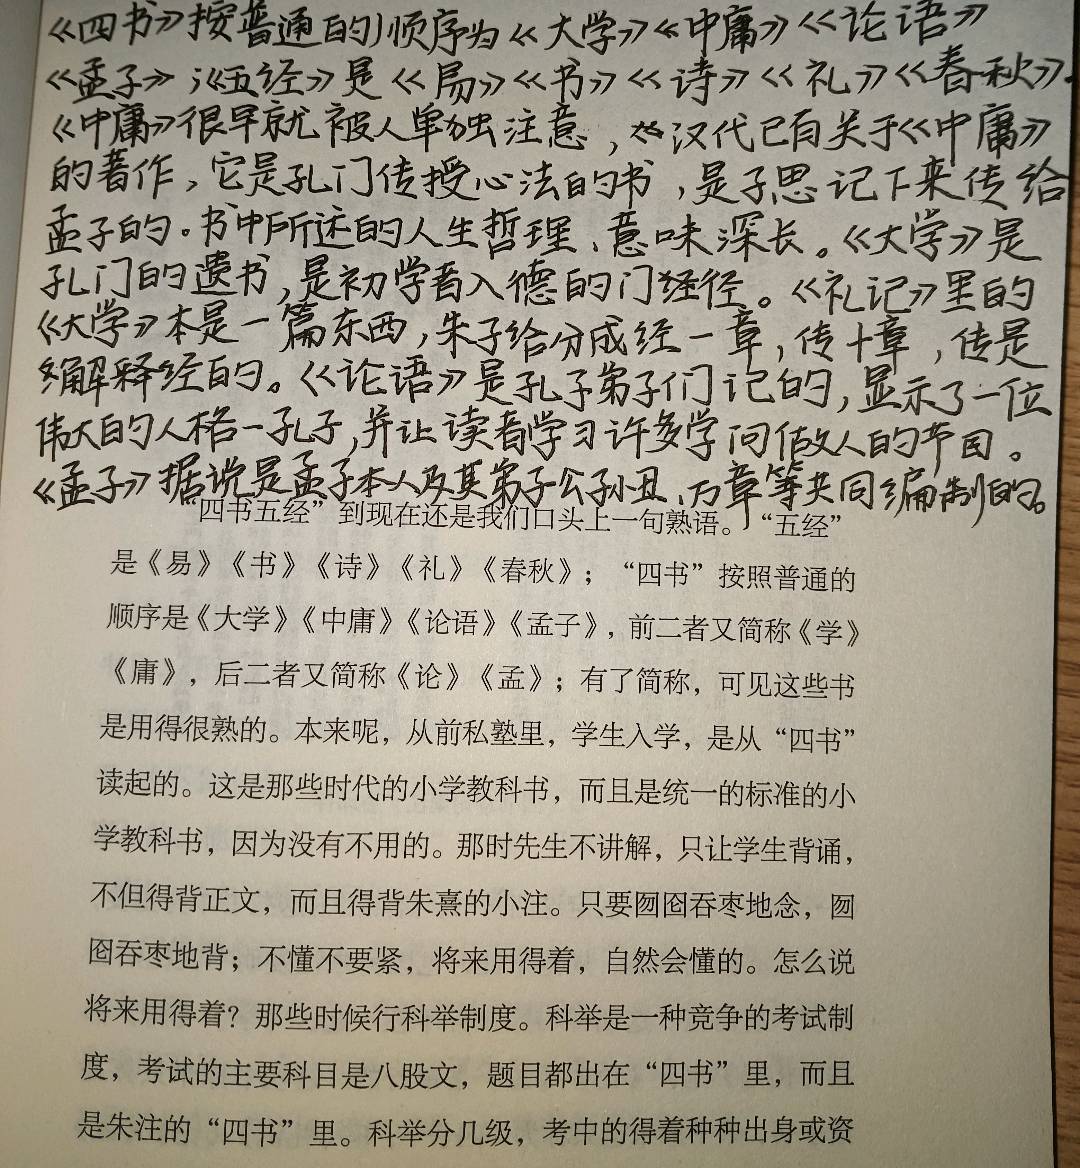 《四书》按普通的顺序为《大学》《中庸》《论语》
《孟子》；《五经》是《易》《书》《诗》《礼》《春秋》。
《中庸》很早就被人单独注意，汉代已有关于《中庸》
的著作，它是孔门传授心法的书，是子思记下来传给
孟子的。书中所述的人生哲理、意味深长。《大学》是
孔门的遗书，是初学者入德的门径。《礼记》里的
《大学》本是一篇东西，朱子给分成经一章，传十章，传是
解释经的。《论语》是孔子弟子们记的，显示了一位
伟大的人格—孔子，并让读者学习许多学问做人的节目。
《孟子》据说是孟子本人及其弟子公孙丑、万章等共同编制的。
“四书五经”到现在还是我们口头上一句熟语。“五经”
是《易》《书》《诗》《礼》《春秋》；“四书”按照普通的
顺序是《大学》《中庸》《论语》《孟子》，前二者又简称《学》
《庸》，后二者又简称《论》《孟》；有了简称，可见这些书
是用得很熟的。本来呢，从前私塾里，学生入学，是从“四书”
读起的。这是那些时代的小学教科书，而且是统一的标准的小
学教科书，因为没有不用的。那时先生不讲解，只让学生背诵，
不但得背正文，而且得背朱熹的小注。只要囫囵吞枣地念，囫
囵吞枣地背；不懂不要紧，将来用得着，自然会懂的。怎么说
将来用得着？那些时候行科举制度。科举是一种竞争的考试制
度，考试的主要科目是八股文，题目都出在“四书”里，而且
是朱注的“四书”里。科举分几级，考中的得着种种出身或资